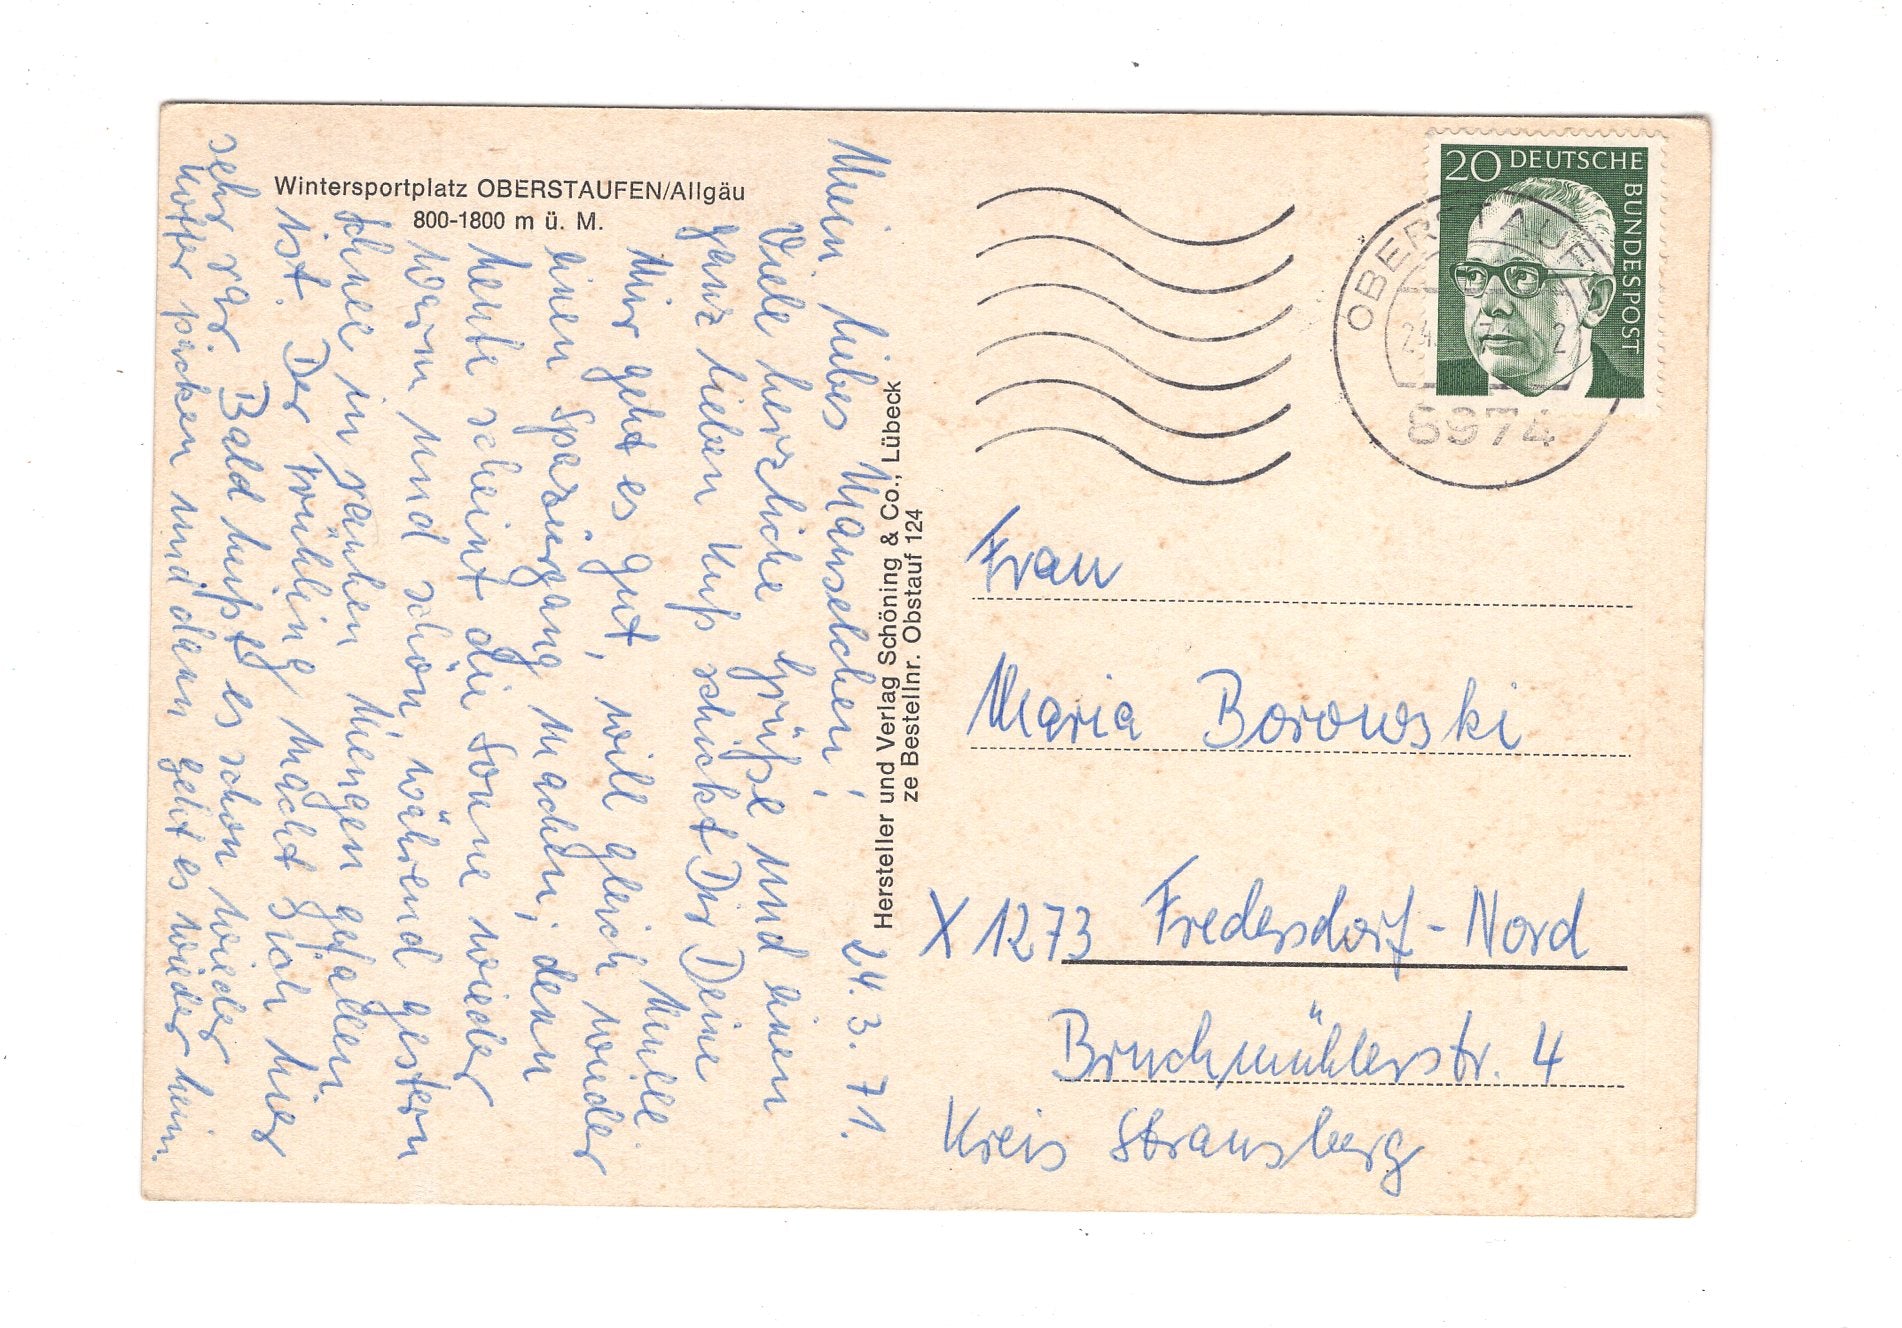 Wintersportplatz OBERSTAUFEN/Allgäu
800-1800 m ü. M.
24. 3. 71.
Mein liebes Mauselchen!
Viele herzliche Grüße und einen
ganz lieben Kuß schickt Dir Deine
Mir geht es gut, will gleich wieder
einen Spaziergang machen, denn
heute scheint die Sonne wieder
warm und schön, während gestern
Schnee in rauhen Mengen gefallen
ist. Der Frühling macht sich hier
sehr rar. Bald heißt es schon wieder
Koffer packen und dann geht es wieder heim.
Hersteller und Verlag Schöning & Co., Lübeck
ze Bestellnr. Obstauf 124
20 DEUTSCHE BUNDESPOST
OBERSTAUFEN
8974
Frau
Maria Borowski
X 1273 Fredersdorf-Nord
Bruchmühlerstr. 4
Kreis Strausberg